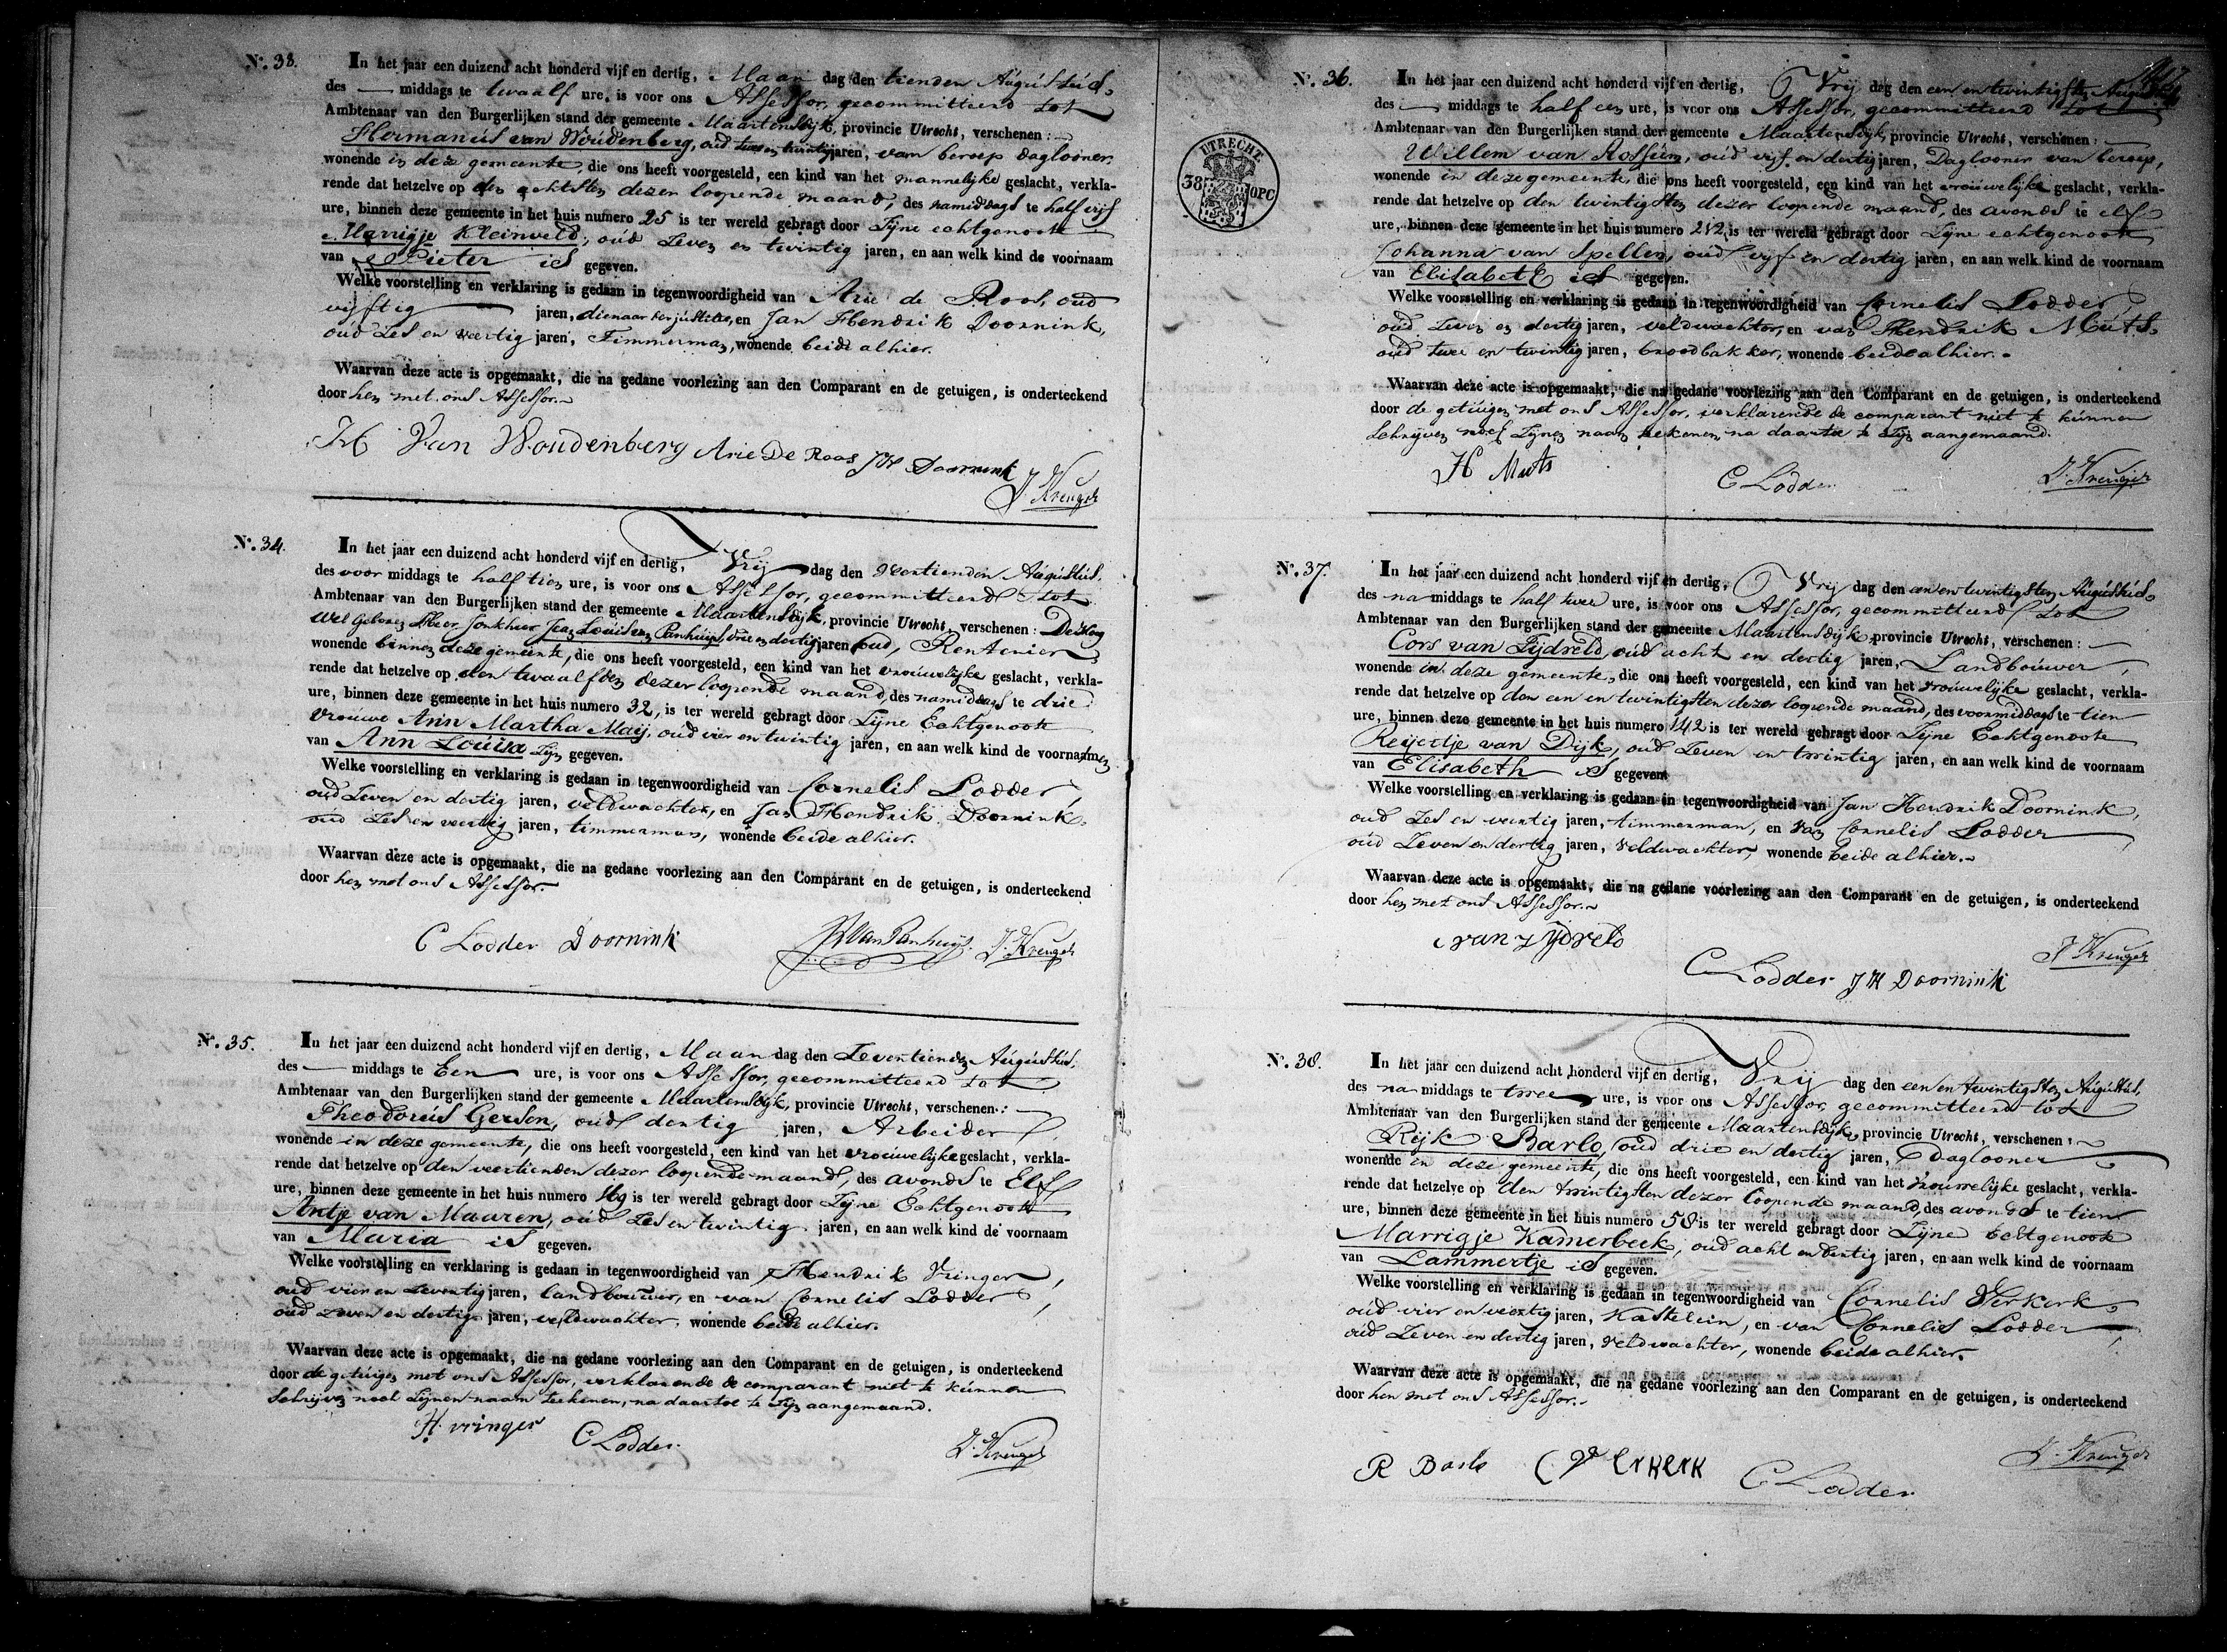 N.º 33.
In het jaar een duizend acht honderd vijf en dertig, Maan dag den tienden Augustus,
des — middags te twaalf ure, is voor ons Assessor, gecommitteerd tot
Ambtenaar van den Burgerlijken stand der gemeente Maartensdijk, provincie Utrecht, verschenen:
Hermanus van Woudenberg, oud twee en twintig jaren, van beroep daglooner
wonende in deze gemeente, die ons heeft voorgesteld, een kind van het mannelijke geslacht, verkla-
rende dat hetzelve op den achtsten dezer loopende maand, des namiddags te half vijf
ure, binnen deze gemeente in het huis numero 25 is ter wereld gebragt door zijne echtgenoote
Marrigje Kleinveld, oud zeven en twintig jaren, en aan welk kind de voornaam
van Pieter is gegeven.
Welke voorstelling en verklaring is gedaan in tegenwoordigheid van Arie de Roos, oud
vijftig — jaren, dienaar der justitie, en Jan Hendrik Doornink,
oud zes en veertig jaren, Timmerman, wonende beide alhier.
Waarvan deze acte is opgemaakt, die na gedane voorlezing aan den Comparant en de getuigen, is onderteekend
door hen met ons Assessor.
H Van Woudenberg Arie De Roos JH Doornink
J. Kreuger
N.º 34.
In het jaar een duizend acht honderd vijf en dertig, Vrij dag den veertienden Augustus,
des voor middags te half tien ure, is voor ons Assessor, gecommitteerd tot
Ambtenaar van den Burgerlijken stand der gemeente Maartensdijk, provincie Utrecht, verschenen: De Hoog
Wel Geboren Heer Jonkheer Jean Louis van Panhuijs, drie en dertig jaren oud, Rentenier
wonende binnen deze gemeente, die ons heeft voorgesteld, een kind van het vrouwelijke geslacht, verkla-
rende dat hetzelve op den twaalfden dezer loopende maand, des namiddags te drie
ure, binnen deze gemeente in het huis numero 32, is ter wereld gebragt door zijne Echtgenoote
Vrouwe Ann Martha Maij, oud vier en twintig jaren, en aan welk kind de voornaamen
van Ann Louisa zijn gegeven.
Welke voorstelling en verklaring is gedaan in tegenwoordigheid van Cornelis Lodder,
oud zeven en dertig jaren, veldwachter, en Jan Hendrik Doornink,
oud zes en veertig jaren, timmerman, wonende beide alhier.
Waarvan deze acte is opgemaakt, die na gedane voorlezing aan den Comparant en de getuigen, is onderteekend
door hen met ons Assessor.
C Lodder Doornink van Panhuijs J. Kreuger
N.º 35.
In het jaar een duizend acht honderd vijf en dertig, Maan dag den zeventienden Augustus,
des — middags te Een ure, is voor ons Assessor, gecommitteerd tot
Ambtenaar van den Burgerlijken stand der gemeente Maartensdijk, provincie Utrecht, verschenen:
Theodorus Gersen, oud dertig jaren, Arbeider
wonende in deze gemeente, die ons heeft voorgesteld, een kind van het vrouwelijke geslacht, verkla-
rende dat hetzelve op den veertienden dezer loopende maand, des avonds te Elf
ure, binnen deze gemeente in het huis numero 169 is ter wereld gebragt door zijne Echtgenoote
Antje van Maaren, oud zes en twintig jaren, en aan welk kind de voornaam
van Maria is gegeven.
Welke voorstelling en verklaring is gedaan in tegenwoordigheid van Hendrik Vringer,
oud vier en zeventig jaren, landbouwer, en van Cornelis Lodder,
oud zeven en dertig jaren, veldwachter, wonende beide alhier.
Waarvan deze acte is opgemaakt, die na gedane voorlezing aan den Comparant en de getuigen, is onderteekend
door de getuigen met ons Assessor, verklarende de comparant niet te kunnen
schrijven noch zijnen naam teekenen, na daartoe te zijn aangemaand.
H. vringer C Lodder. J. Kreuger
UTRECHT
38 OPC
N.º 36.
In het jaar een duizend acht honderd vijf en dertig, Vrij dag den een en twintigsten Augustus
des — middags te half een ure, is voor ons Assessor, gecommitteerd tot
Ambtenaar van den Burgerlijken stand der gemeente Maartensdijk, provincie Utrecht, verschenen:
Willem van Rossum, oud vijf en dertig jaren, Daglooner van beroep,
wonende in deze gemeente, die ons heeft voorgesteld, een kind van het vrouwelijke geslacht, verkla-
rende dat hetzelve op den twintigsten dezer loopende maand, des avonds te elf
ure, binnen deze gemeente in het huis numero 212, is ter wereld gebragt door zijne echtgenoote
Johanna van Spellen, oud vijf en dertig jaren, en aan welk kind de voornaam
van Elisabeth is gegeven.
Welke voorstelling en verklaring is gedaan in tegenwoordigheid van Cornelis Lodder,
oud zeven en dertig jaren, veldwachter, en van Hendrik Muts,
oud twee en twintig jaren, broodbakker, wonende beide alhier.
Waarvan deze acte is opgemaakt, die na gedane voorlezing aan den Comparant en de getuigen, is onderteekend
door de getuigen met ons Assessor, verklarende de comparant niet te kunnen
schrijven noch zijnen naam teekenen, na daartoe te zijn aangemaand.
H Muts C Lodder J. Kreuger
N.º 37.
In het jaar een duizend acht honderd vijf en dertig, Vrij dag den een en twintigsten Augustus,
des na middags te half twee ure, is voor ons Assessor, gecommitteerd tot
Ambtenaar van den Burgerlijken stand der gemeente Maartensdijk, provincie Utrecht, verschenen:
Cors van Zijdveld, oud acht en dertig jaren, Landbouwer,
wonende in deze gemeente, die ons heeft voorgesteld, een kind van het vrouwelijke geslacht, verkla-
rende dat hetzelve op den een en twintigsten dezer loopende maand, des voormiddags te tien
ure, binnen deze gemeente in het huis numero 142 is ter wereld gebragt door zijne Echtgenoote
Reijertje van Dijk, oud zeven en twintig jaren, en aan welk kind de voornaam
van Elisabeth is gegeven
Welke voorstelling en verklaring is gedaan in tegenwoordigheid van Jan Hendrik Doornink,
oud zes en veertig jaren, timmerman, en van Cornelis Lodder
oud zeven en dertig jaren, veldwachter, wonende beide alhier.
Waarvan deze acte is opgemaakt, die na gedane voorlezing aan den Comparant en de getuigen, is onderteekend
door hen met ons Assessor.
c van zijdveld J. Kreuger
C Lodder J H Doornink
N.º 38.
In het jaar een duizend acht honderd vijf en dertig, Vrij dag den een en twintigsten Augustus,
des na middags te twee ure, is voor ons Assessor, gecommitteerd tot
Ambtenaar van den Burgerlijken stand der gemeente Maartensdijk, provincie Utrecht, verschenen:
Rijk Barlo, oud drie en dertig jaren, Daglooner
wonende in deze gemeente, die ons heeft voorgesteld, een kind van het vrouwelijke geslacht, verkla-
rende dat hetzelve op den twintigsten dezer loopende maand, des avonds te tien
ure, binnen deze gemeente in het huis numero 58 is ter wereld gebragt door zijne Echtgenoote
Marrigje Kamerbeek, oud acht en dertig jaren, en aan welk kind de voornaam
van Lammertje is gegeven.
Welke voorstelling en verklaring is gedaan in tegenwoordigheid van Cornelis Verkerk,
oud vier en veertig jaren, Kastelein, en van Cornelis Lodder
oud zeven en dertig jaren, veldwachter, wonende beide alhier.
Waarvan deze acte is opgemaakt, die na gedane voorlezing aan den Comparant en de getuigen, is onderteekend
door hen met ons Assessor.
R Barlo C VerKerk C Lodder J. Kreuger